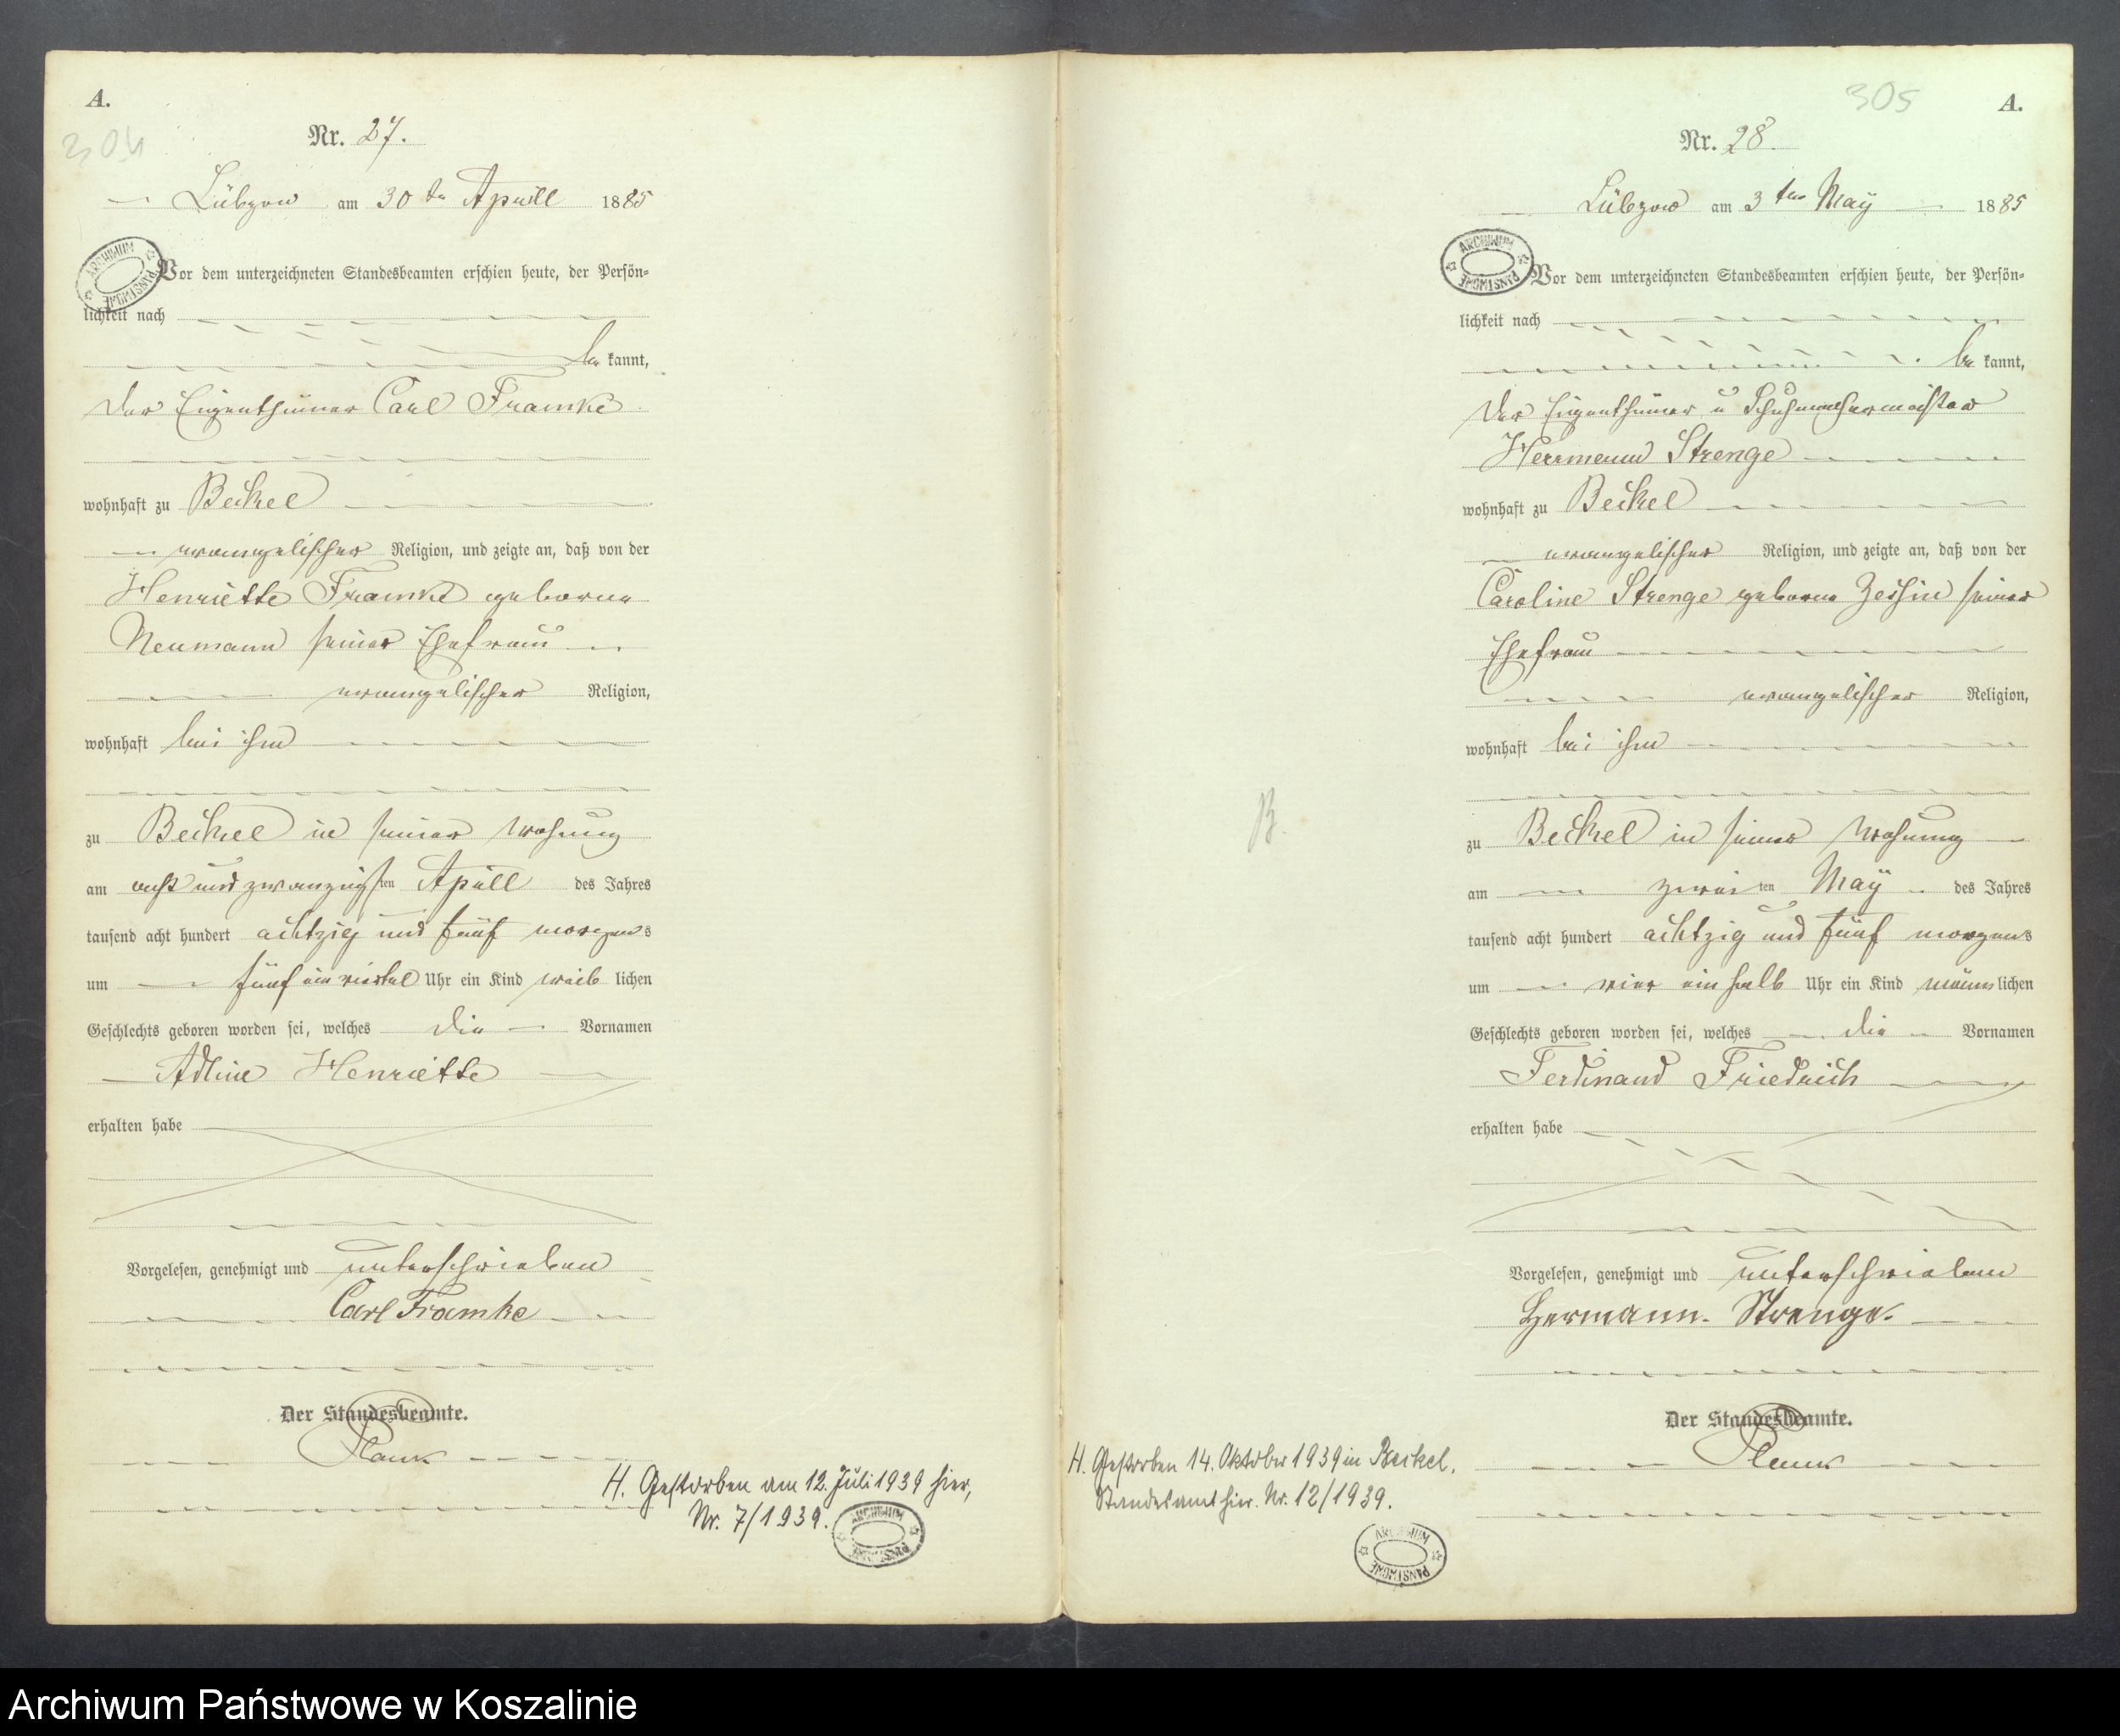 A.
304
Nr. 27.
Lübzow am 30 ten Aprill 1885
Vor dem unterzeichneten Standesbeamten erschien heute, der Persön-
lichkeit nach
be kannt,
der Eigenthümer Carl Framke
wohnhaft zu Beckel
evangelischer Religion, und zeigte an, daß von der
Henriette Framke geborne
Neumann seiner Ehefrau
evangelischer Religion,
wohnhaft bei ihm
zu Beckel in seiner Wohnung
am acht und zwanzigsten Aprill des Jahres
tausend acht hundert achtzig und fünf morgens
um fünf ein viertel Uhr ein Kind weib lichen
Geschlechts geboren worden sei, welches die Vornamen
Adline Henriette
erhalten habe
Vorgelesen, genehmigt und unterschrieben
Carl Framke
Der Standesbeamte.
H. Gestorben am 12. Juli 1939 hier,
Nr. 7/1939.
ARCHIWUM PAŃSTWOWE
305
A.
Nr. 28.
Lübzow am 3 ten May 1885
Vor dem unterzeichneten Standesbeamten erschien heute, der Persön-
lichkeit nach
be kannt,
der Eigenthümer u Schuhmachermeister
Herrmann Strenge
wohnhaft zu Beckel
evangelischer Religion, und zeigte an, daß von der
Caroline Strenge geborne seiner
Ehefrau
evangelischer Religion,
wohnhaft bei ihm
zu Beckel in seiner Wohnung
am zweiten May des Jahres
tausend acht hundert achtzig und fünf morgens
um vier ein halb Uhr ein Kind männlichen
Geschlechts geboren worden sei, welches die Vornamen
Ferdinand Friedrich
erhalten habe
Vorgelesen, genehmigt und unterschrieben
Hermann. Strenge.
Der Standesbeamte.
H. Gestorben 14. Oktober 1939 in Beckel.
Standesamt hier. Nr. 12/1939.
ARCHIWUM PAŃSTWOWE
Archiwum Państwowe w Koszalinie